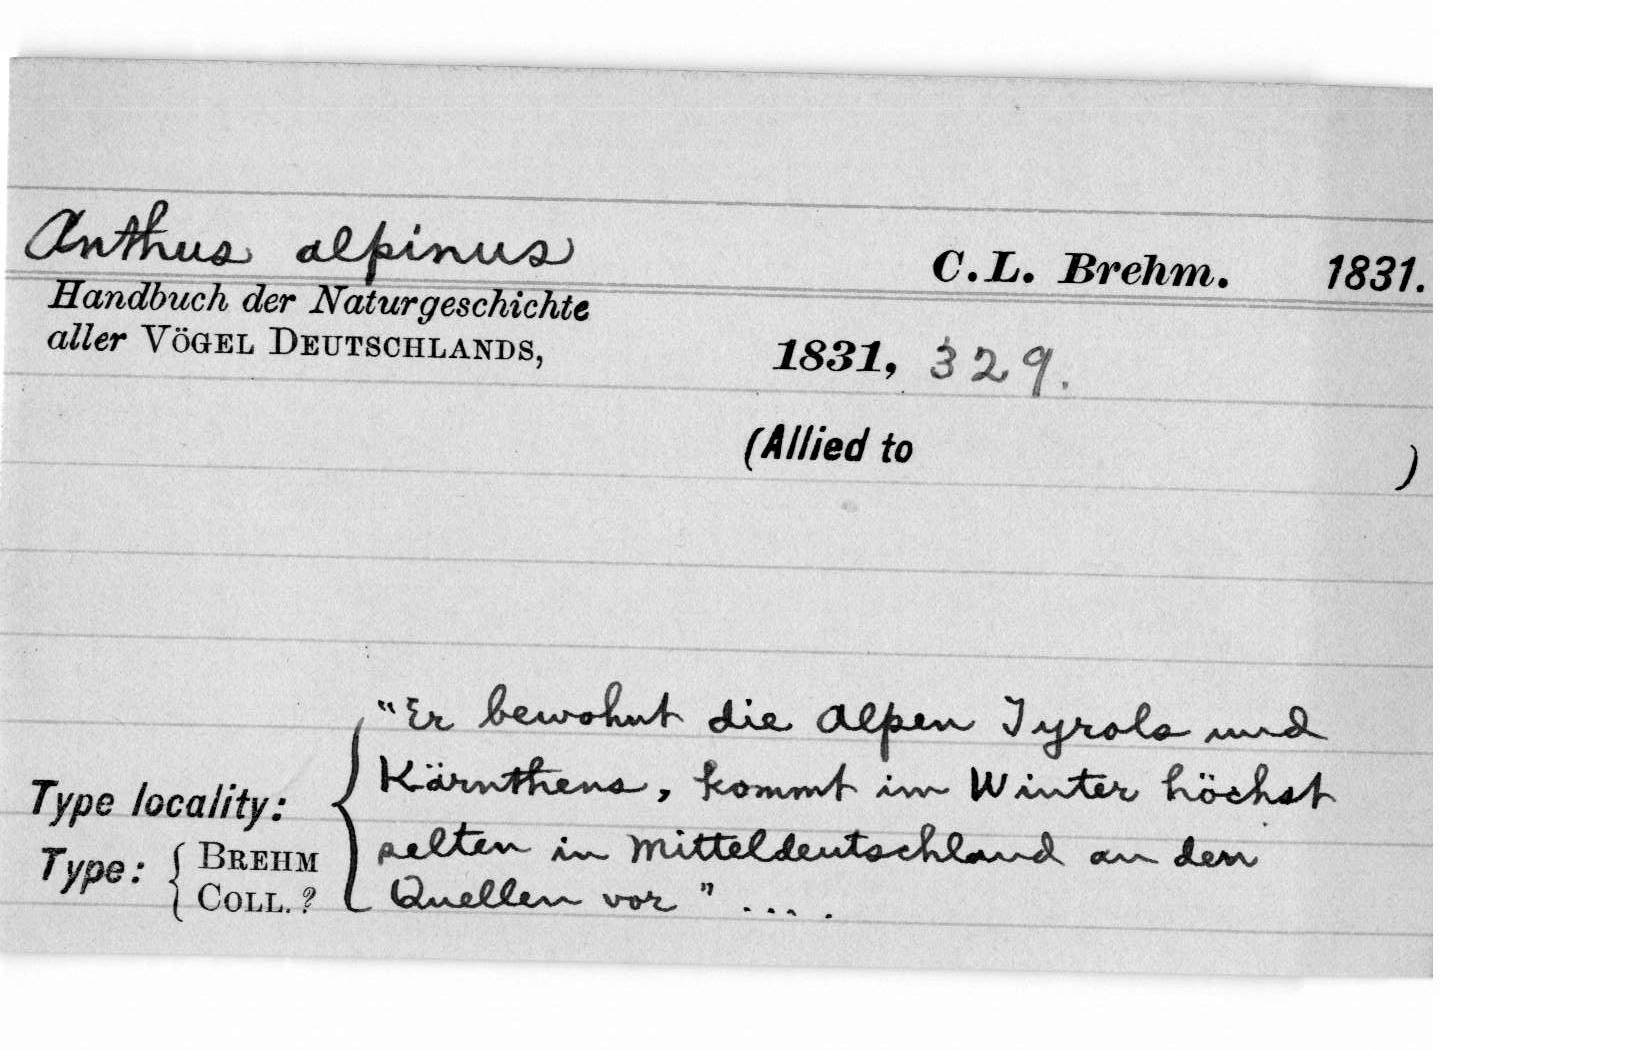 Anthus alpinus C.L. Brehm. 1831.
Handbuch der Naturgeschichte
aller VÖGEL DEUTSCHLANDS, 1831, 329.
(Allied to )
"Er bewohnt die Alpen Tyrols und
Kärnthens, kommt im Winter höchst
Type locality:
selten in Mitteldeutschland an den
Type: { BREHM
COLL. ?
Quellen vor" ....